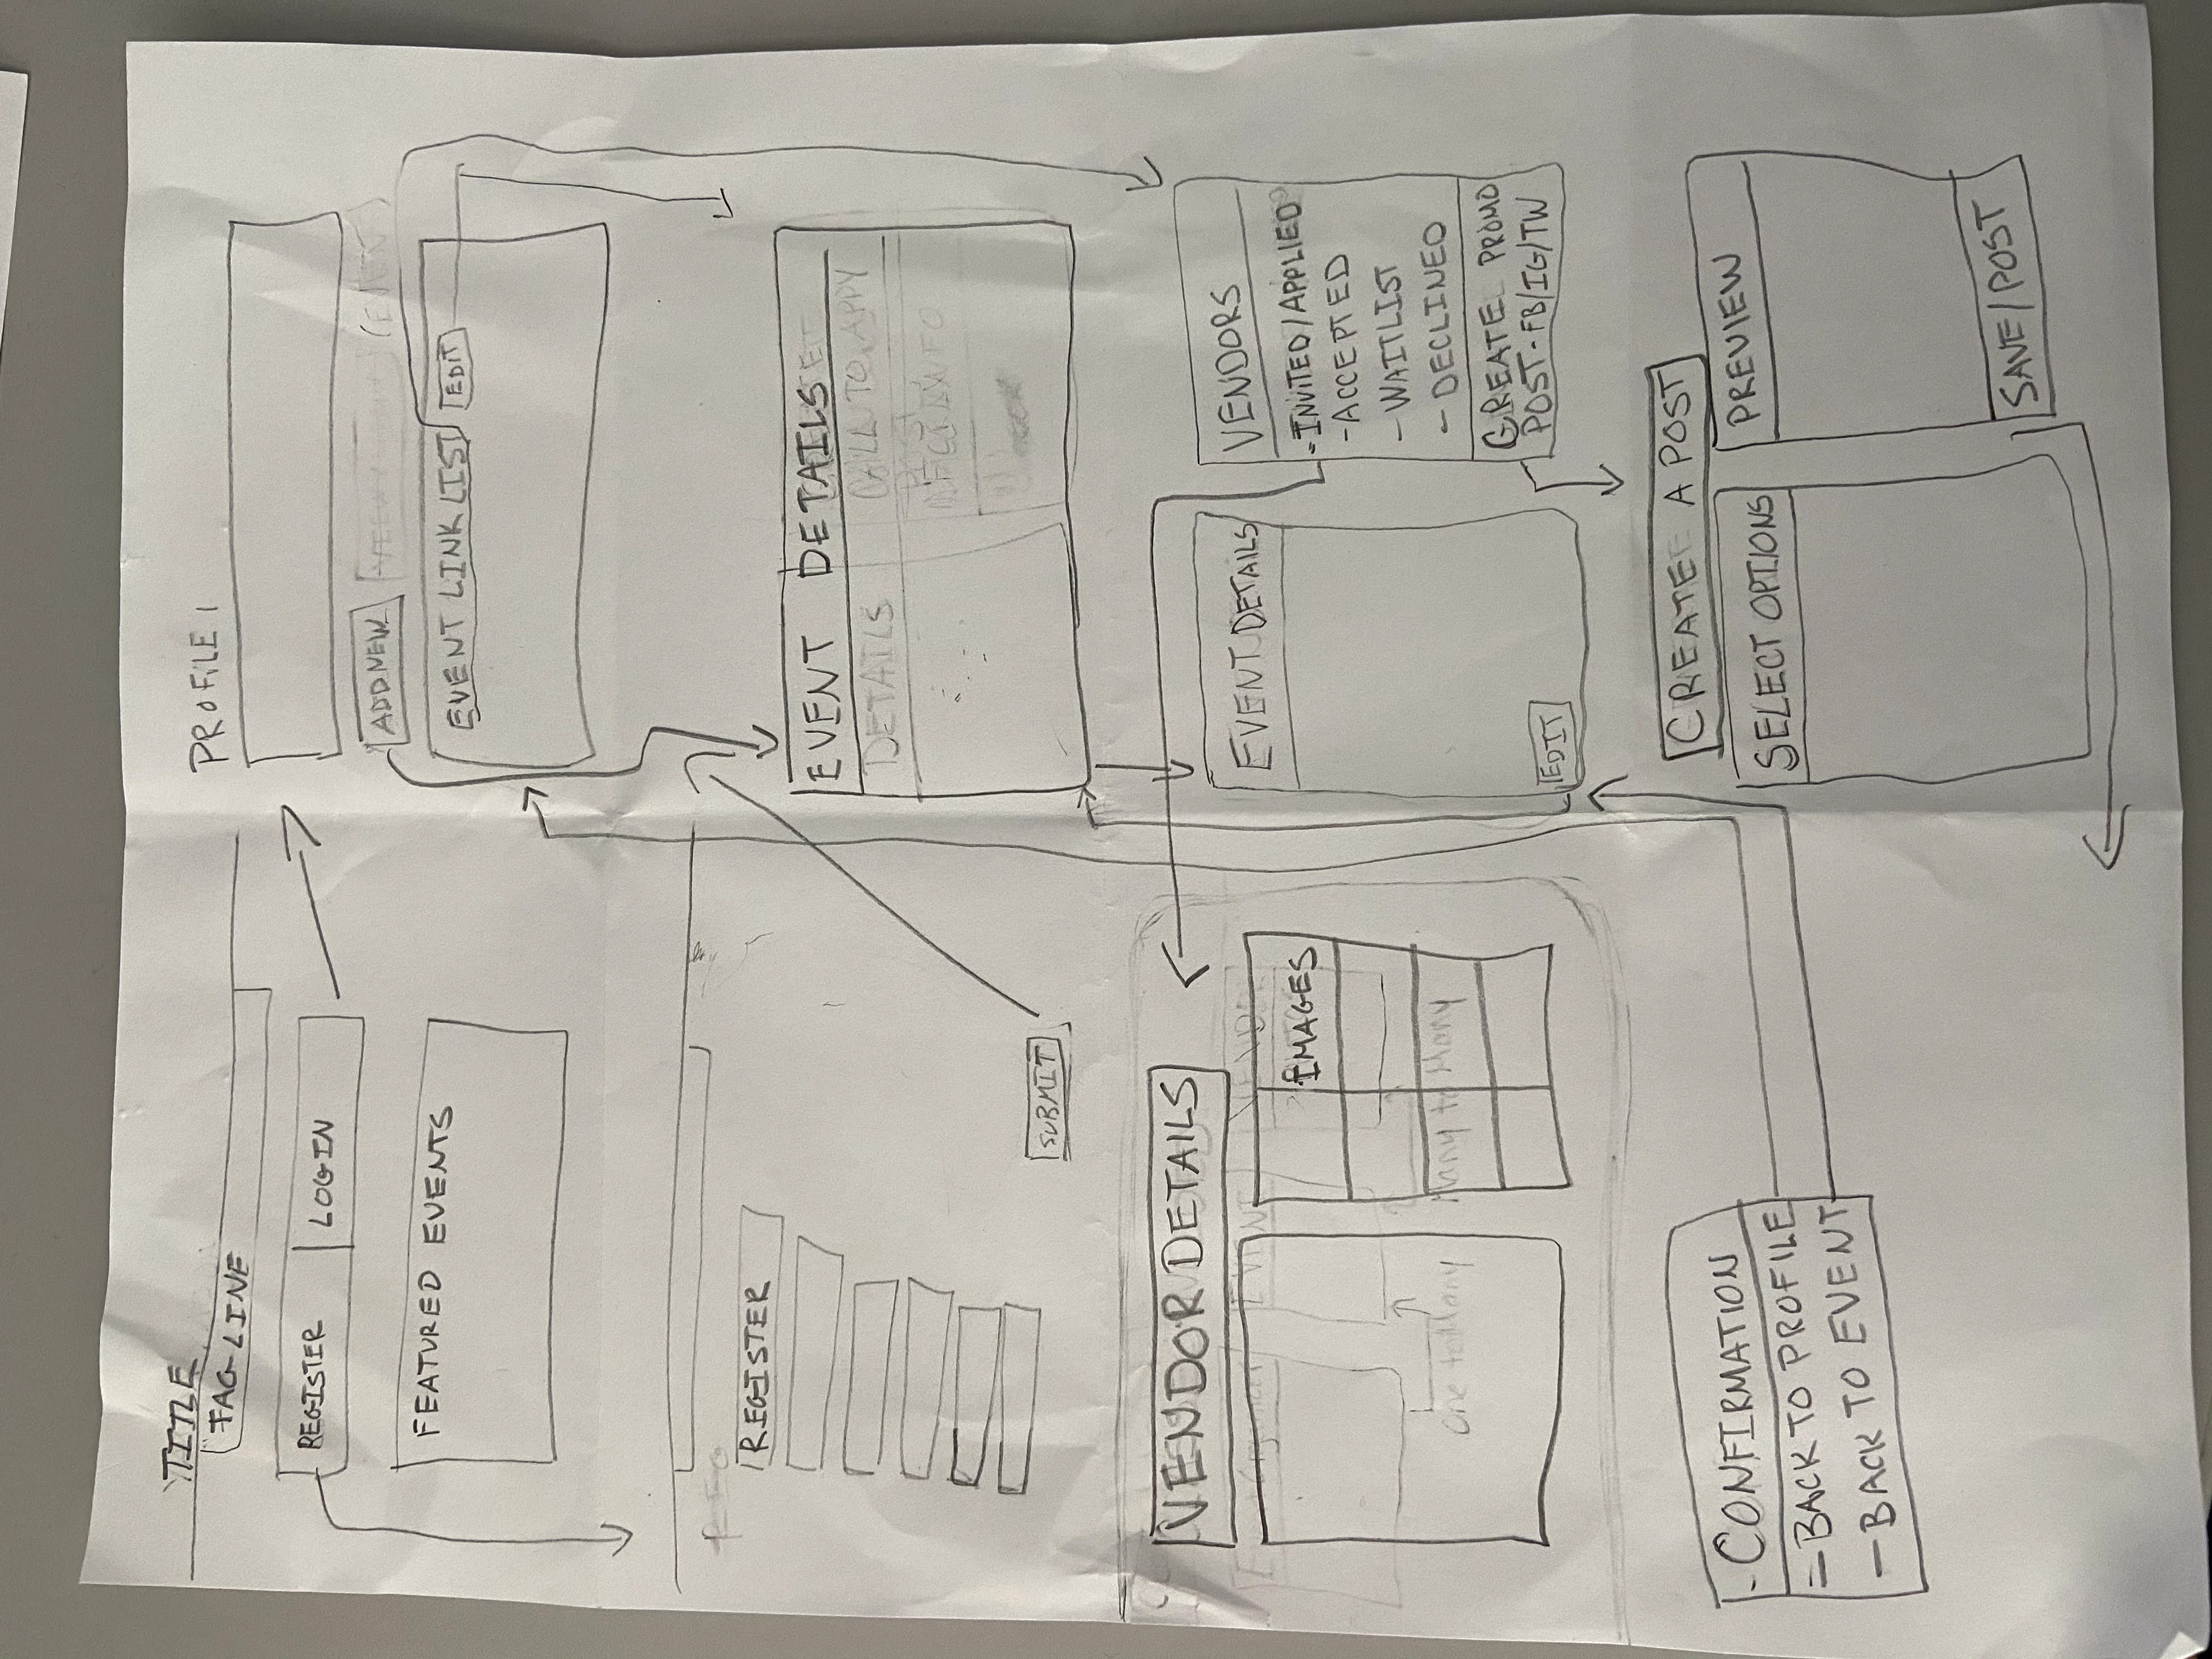 TITLE
TAG-LINE
REGISTER
LOGIN
FEATURED EVENTS
REGISTER
SUBMIT
VENDOR DETAILS
EVENT
IMAGES
One to Many
Many to Many
- CONFIRMATION
- BACK TO PROFILE
- BACK TO EVENT
PROFILE 1
ADD NEW
(EVENT)
EVENT LINK LIST
EDIT
EVENT DETAILS
DETAILS
CALL TO APPY
POST
EVENT DETAILS
EDIT
VENDORS
- INVITED/APPLIED
- ACCEPTED
- WAITLIST
- DECLINED
CREATE PROMO
POST - FB/IG/TW
CREATE A POST
SELECT OPTIONS
PREVIEW
SAVE/POST